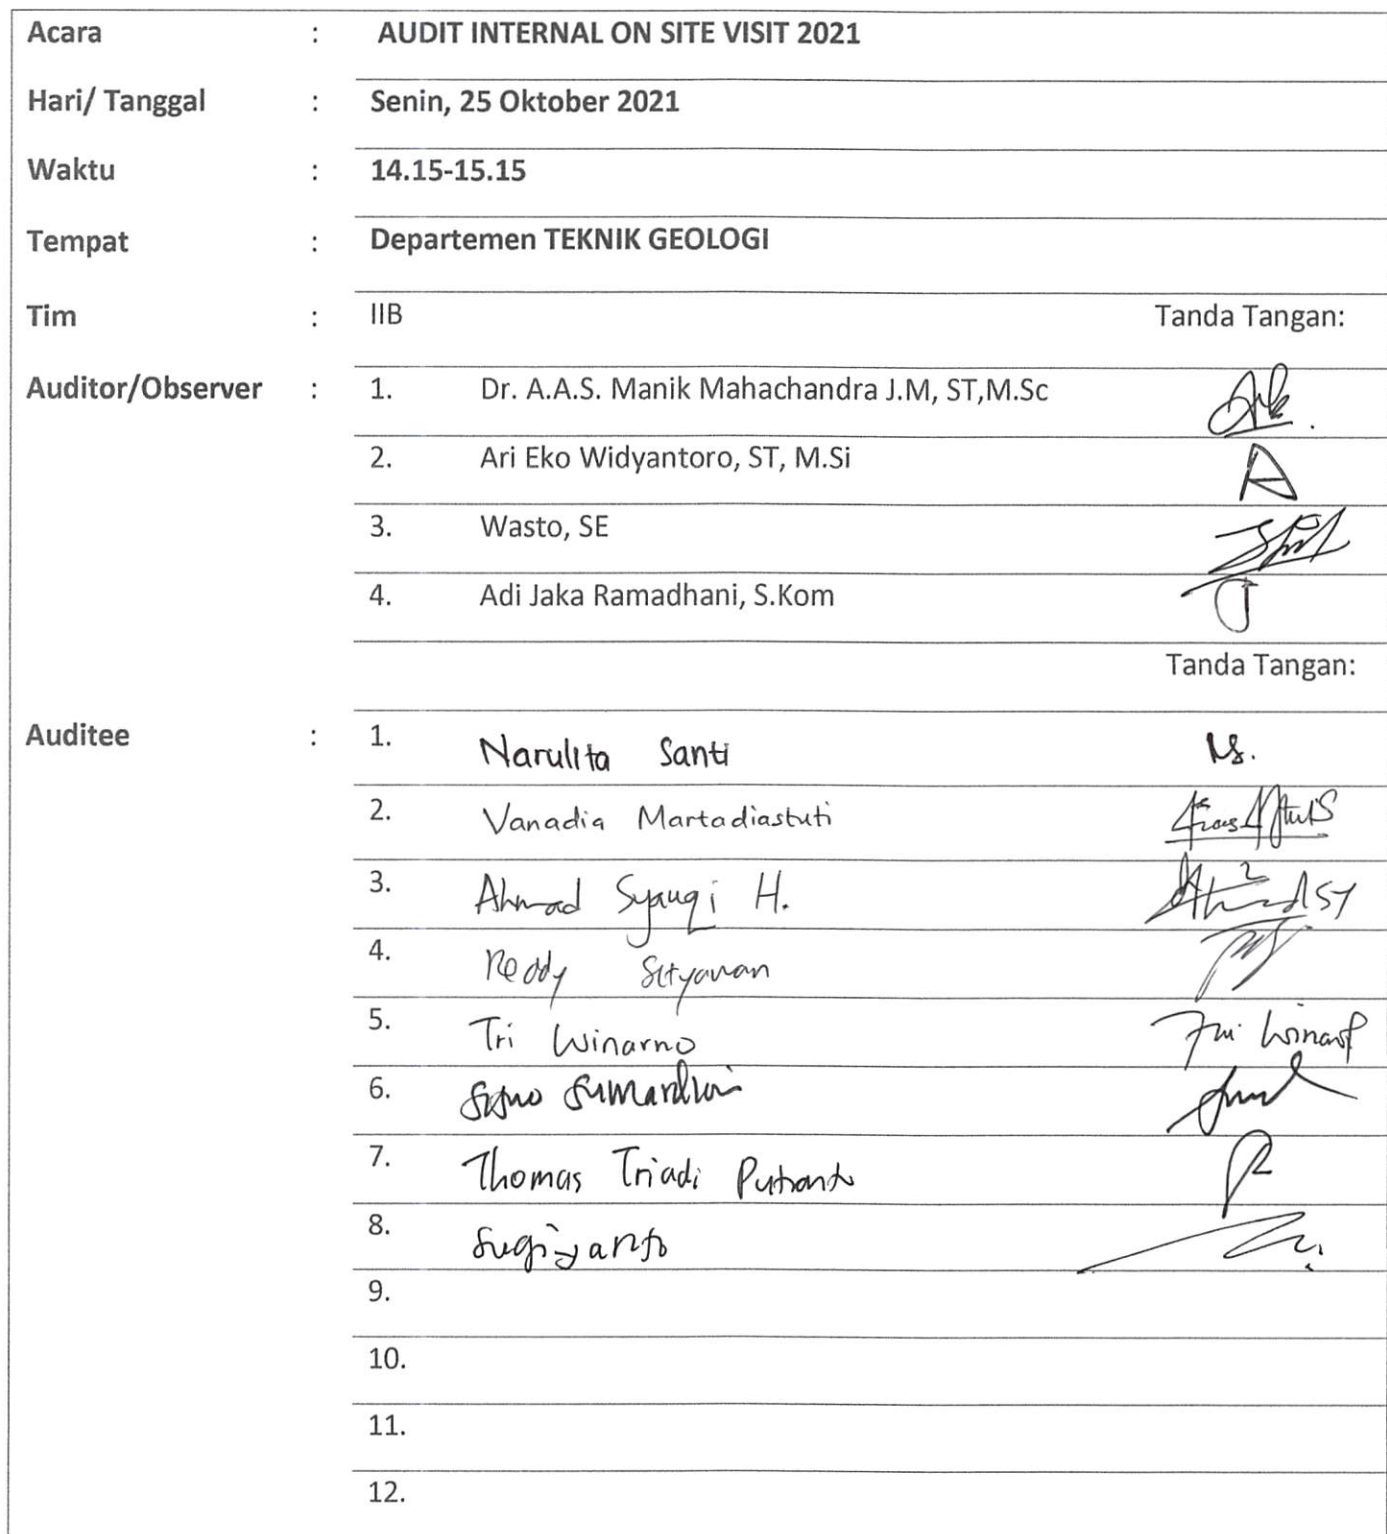 Acara : AUDIT INTERNAL ON SITE VISIT 2021
Hari/ Tanggal : Senin, 25 Oktober 2021
Waktu : 14.15-15.15
Tempat : Departemen TEKNIK GEOLOGI
Tim : IIB Tanda Tangan:
Auditor/Observer : 1. Dr. A.A.S. Manik Mahachandra J.M, ST,M.Sc
2. Ari Eko Widyantoro, ST, M.Si
3. Wasto, SE
4. Adi Jaka Ramadhani, S.Kom
Tanda Tangan:
Auditee : 1. Narulita Santi Ns.
2. Vanadia Martadiastuti
3. Ahmad Syauqi H.
4. Reddy Setyawan
5. Tri Winarno Tri Winarno
6.
7. Thomas Triadi Putranto
8. Sugiyanto
9.
10.
11.
12.